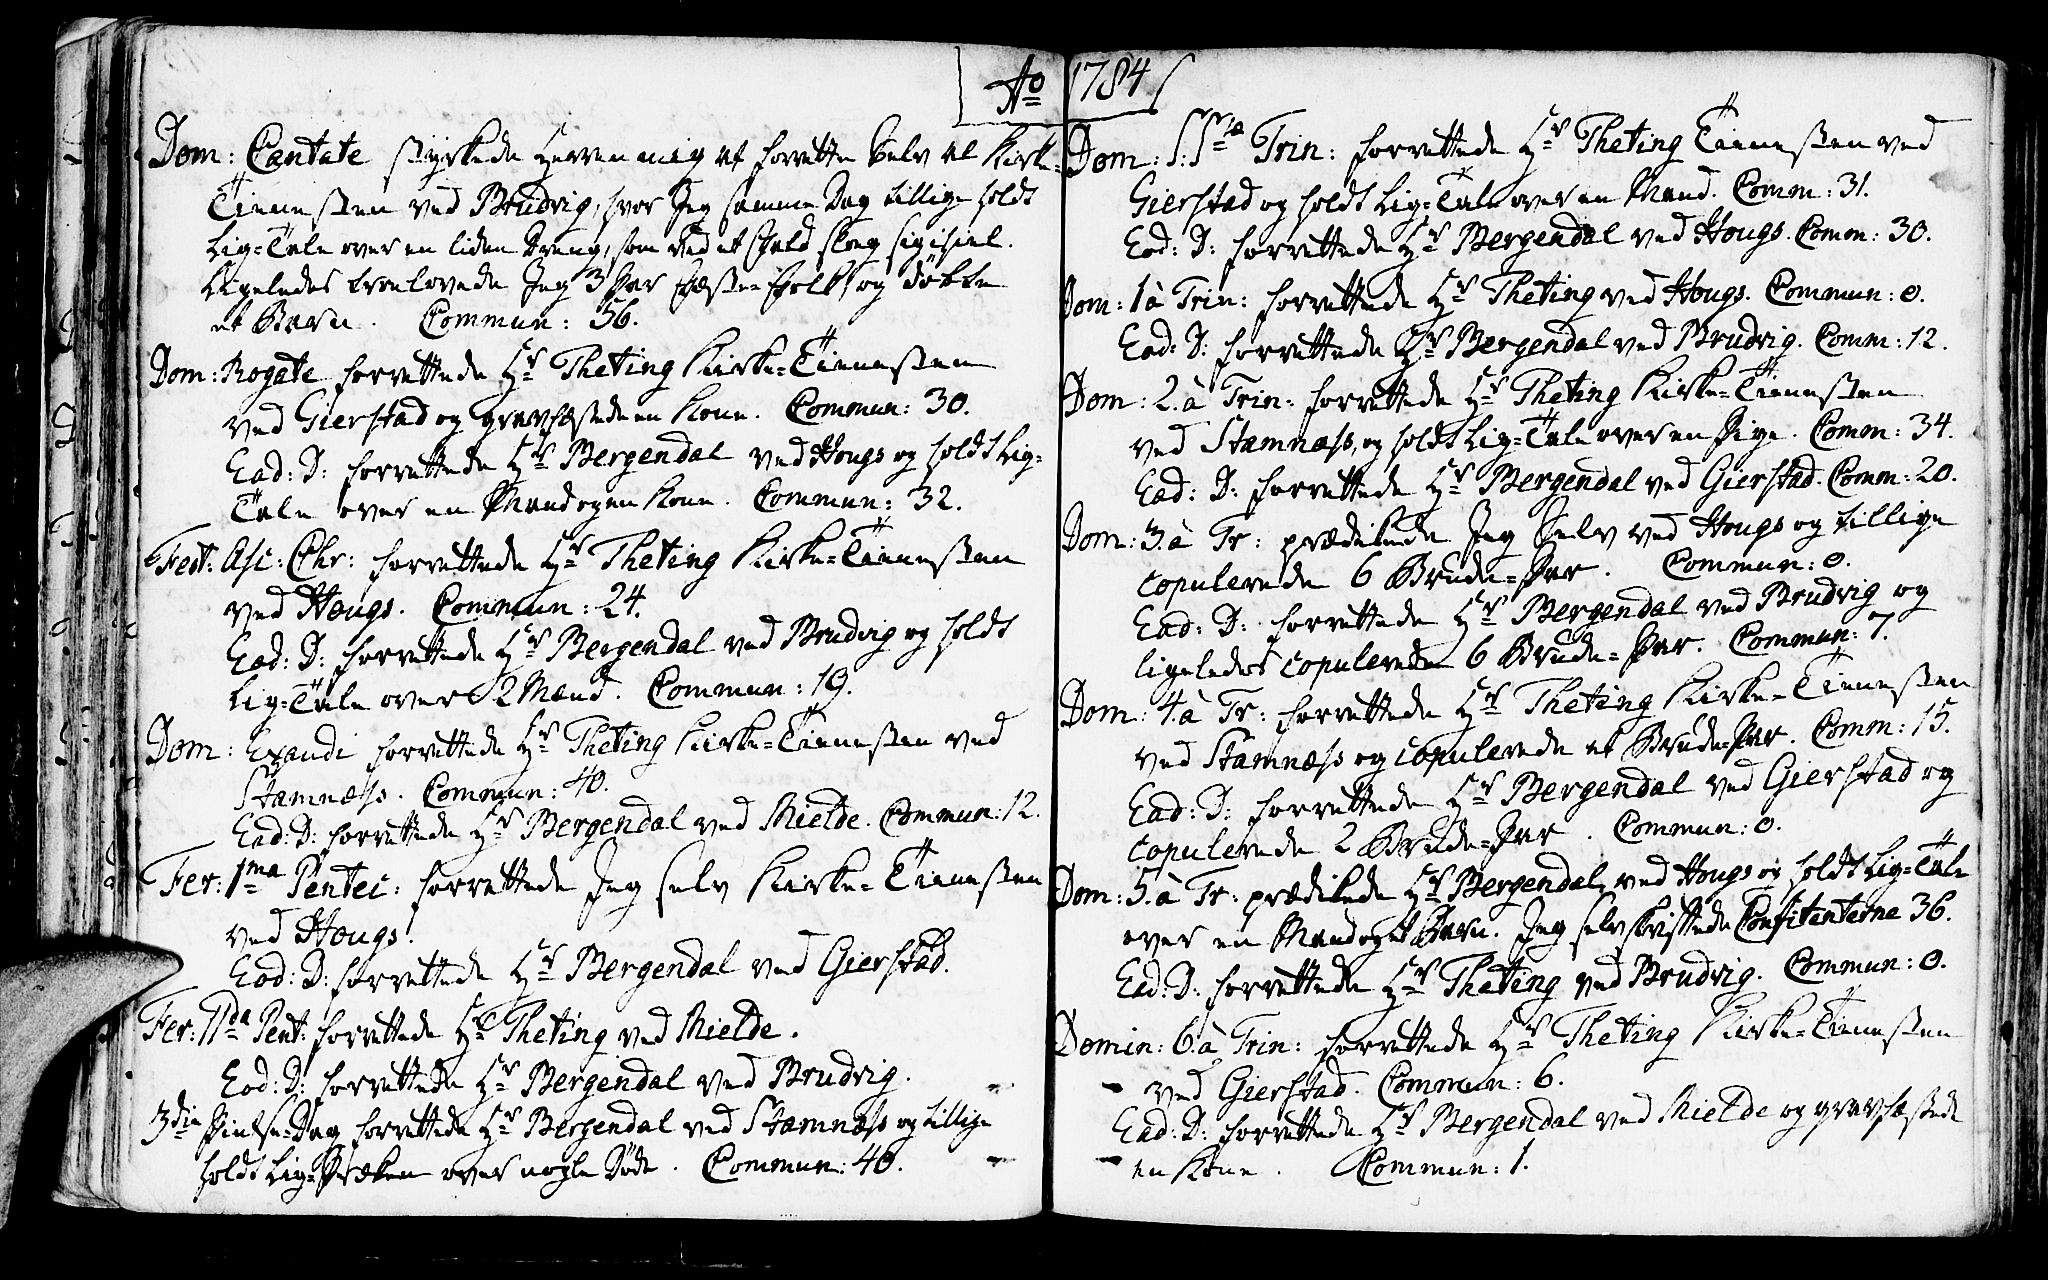 Ao 1784
Dom: Cantate styrkede Herren mig at forrette Selv al Kirke-
Tienesten ved Brudvig, hvor Jeg samme Dag tillige holdt
Lig-Tale over en liden Dreng, som ved et Fald slog sig ihiel.
Ligeledes troelovede Jeg 3 Par Fæste-Folk, og døbte
et Barn. Commun: 56.
Dom: Rogate forrettede Hr Theting Kirke-Tienesten
ved Gierstad og gravfæstede en Kone. Commun: 30.
Ead: D: forrettede Hr Bergendal ved Hougs og holdt Lig-
Tale over en Mand og en Kone. Commun: 32.
Fest: Asc: Chr: forrettede Hr Theting Kirke-Tienesten
ved Hougs. Commun: 24.
Ead: D: forrettede Hr Bergendal ved Brudvig og holdt
Lig-Tale over 2 Mænd. Commun: 19.
Dom: Exaudi forrettede Hr Theting Kirke-Tienesten ved
Stamnæss. Commun: 40.
Ead: D: forrettede Hr Bergendal ved Mielde. Commun: 12.
Fer: 1ma Pentec: forrettede Jeg selv Kirke-Tienesten
ved Hougs.
Eod: D: forrettede Hr Bergendal ved Gierstad.
Fer: IIda Pent: forrettede Hr Theting ved Mielde.
Eod: D: forrettede Hr Bergendal ved Brudvig.
3die Pintse-Dag forrettede Hr Bergendal ved Stamnæss og tillige
holdt Lig-Præken over nogle Døde. Commun: 40.
Dom: S: Stæ Trin: forrettede Hr Theting Tienesten ved
Gierstad og holdt Lig-Tale over en Mand. Comm: 31.
Eod: D: forrettede Hr Bergendal ved Hougs. Comm: 30.
Dom: 1 à Trin: forrettede Hr Theting ved Hougs. Commun: 0.
Ead: D: forrettede Hr Bergendal ved Brudvig. Comm: 12.
Dom: 2. à Trin: forrettede Hr Theting Kirke-Tienesten
ved Stamnæss, og holdt Lig-Tale over en Pige. Comm: 34.
Ead: D: forrettede Hr Bergendal ved Gierstad. Comm: 20.
Dom: 3. à Tr: prædikede Jeg Selv ved Hougs og tillige
copulerede 6 Brude-Par. Commun: 0.
Ead: D: forrettede Hr Bergendal ved Brudvig og
ligeledes copulerede 6 Brude-Par. Commun: 7.
Dom: 4. à Tr: forrettede Hr Theting Kirke-Tienesten
ved Stamnæss og copulerede et Brude-Par. Comm: 15.
Ead: D: forrettede Hr Bergendal ved Gierstad og
copulerede 2 Brude-Par. Commun: 0.
Dom: 5. à Tr: prædikede Hr Bergendal ved Hougs og holdt Lig-Tale
over en Mand og et Barn. Jeg selv skriftede Confitenterne 36.
Ead: D: forrettede Hr Theting ved Brudvig. Commun: 0.
Domin: 6. à Trin: forrettede Hr Theting Kirke-Tienesten
ved Gierstad. Commun: 6.
Ead: D: forrettede Hr Bergendal ved Mielde og gravfæstede
en Kone. Commun: 1.